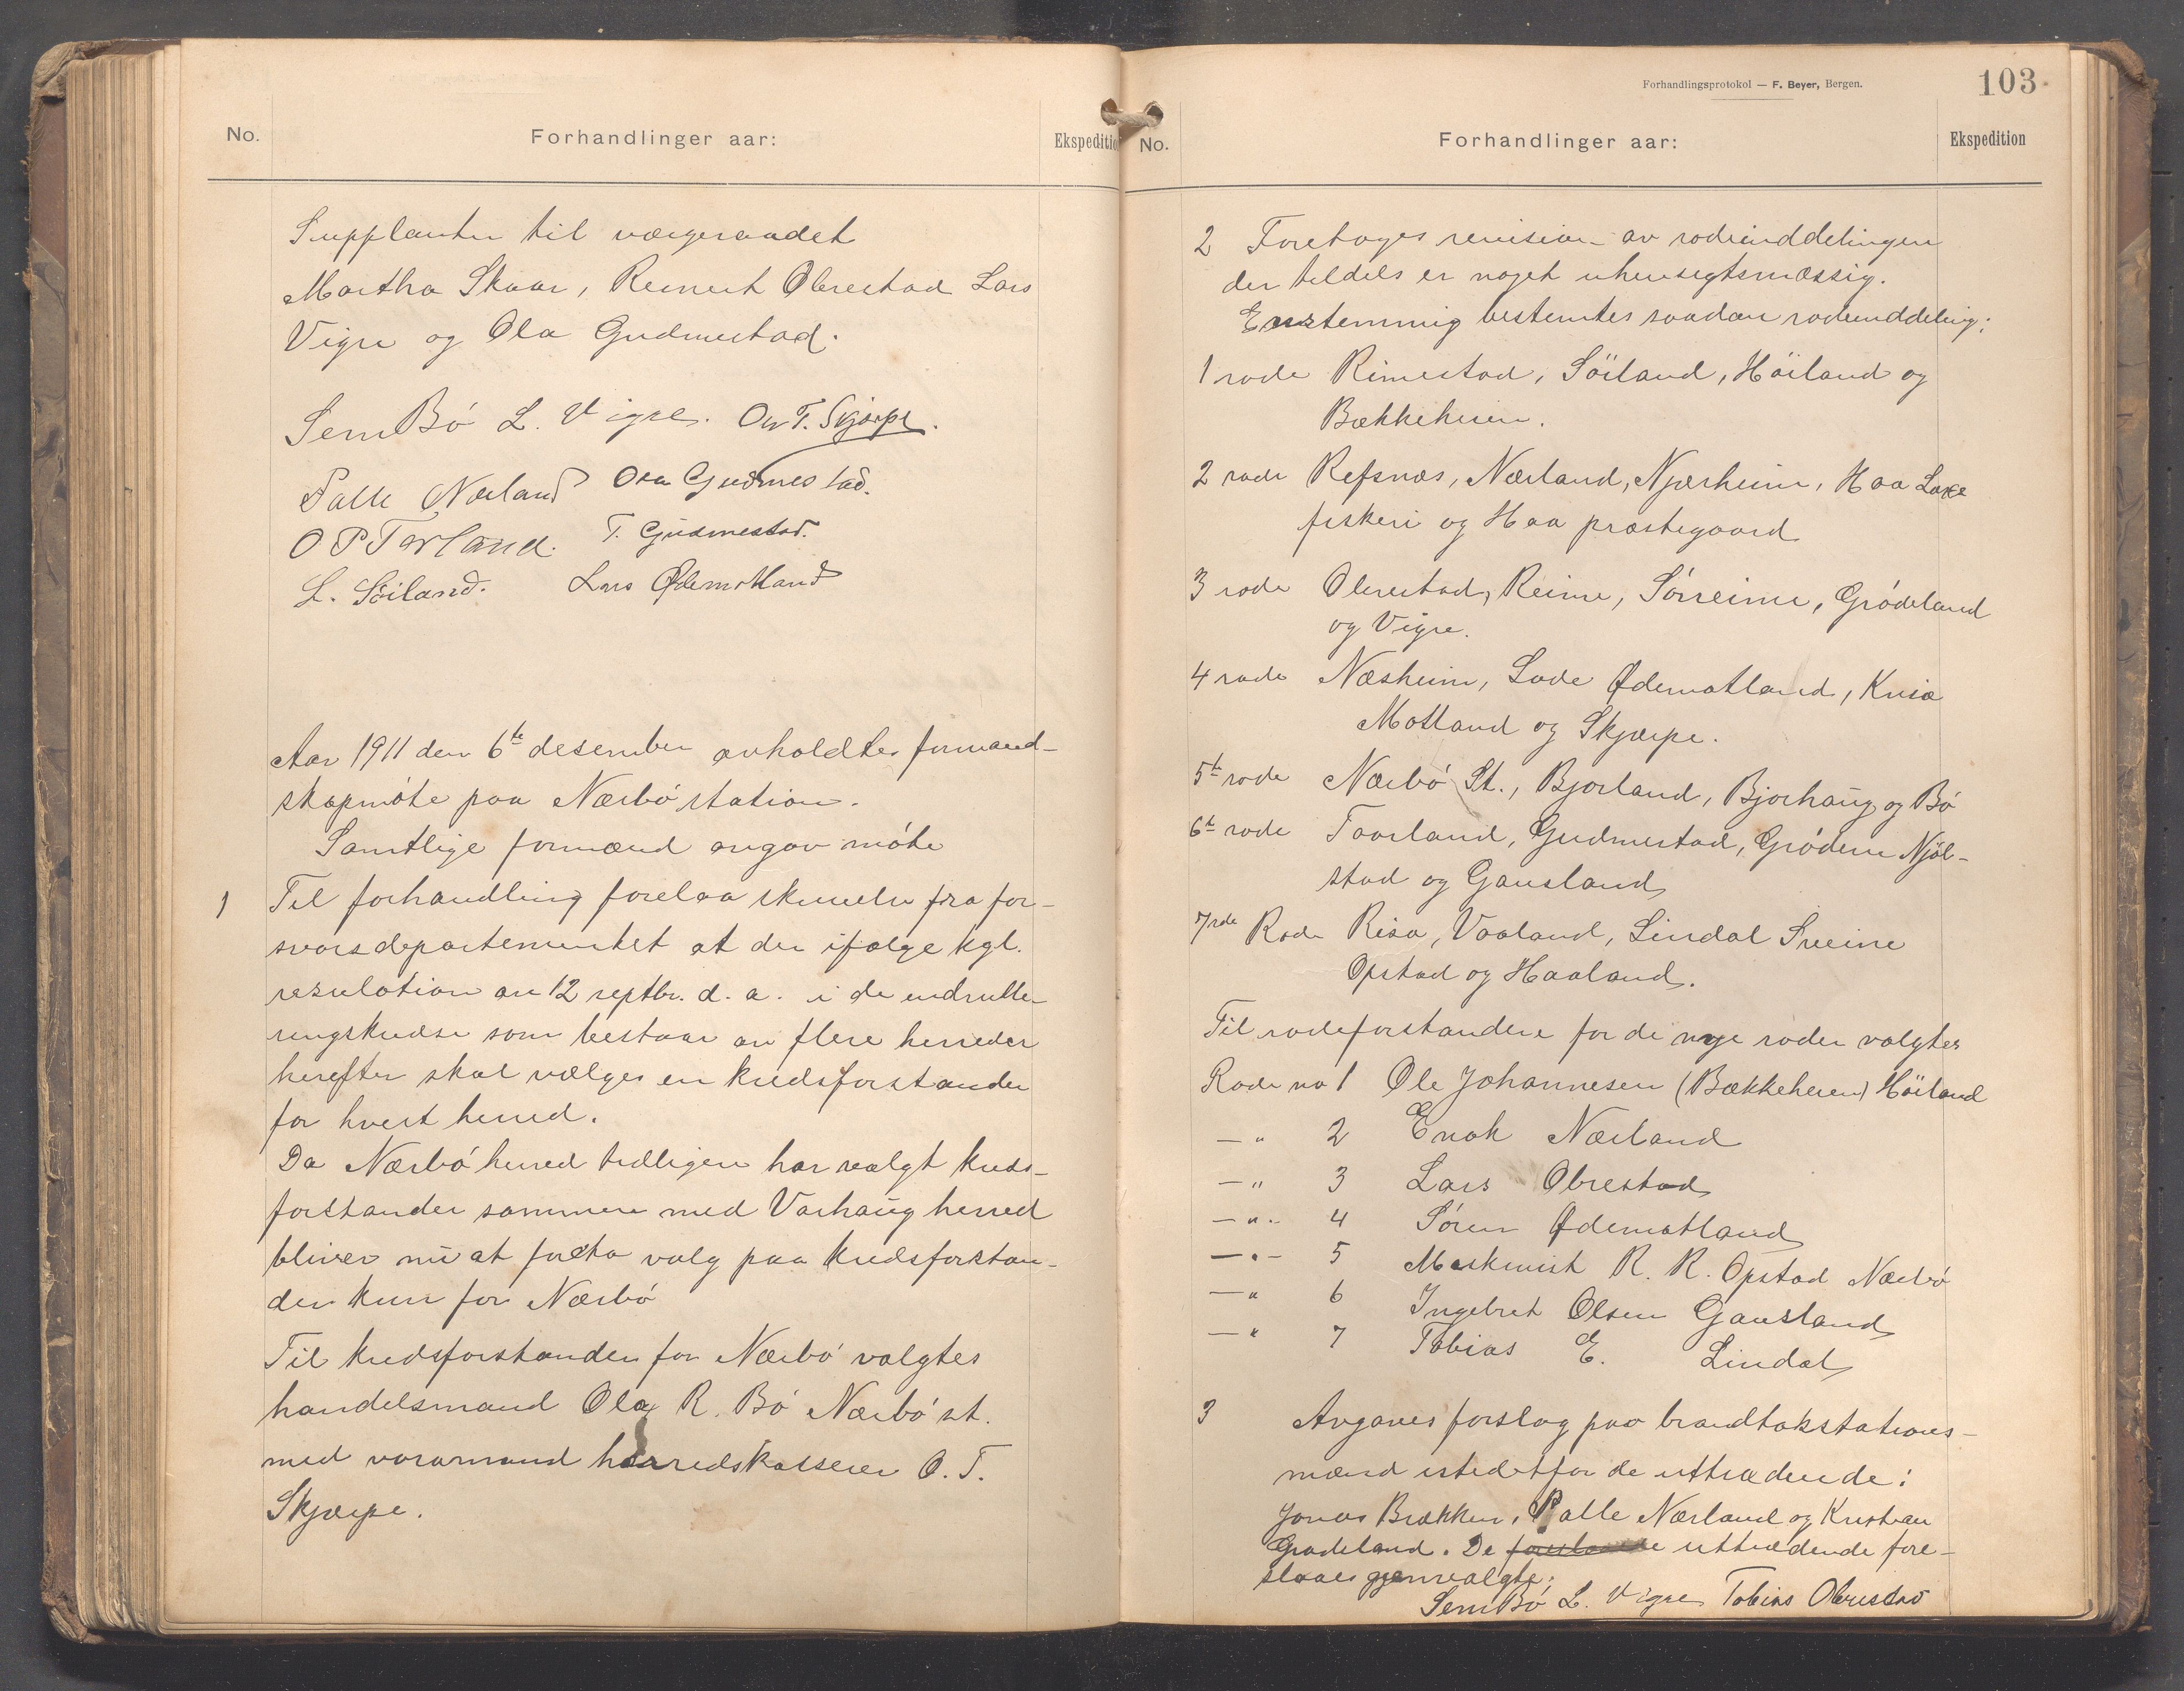 No. Forhandlinger aar: Ekspeditio
Supplanter til vergeraadet
Martha Skaar, Reinert Obrestad Lars
Vigre og Ola Gudmestad.
Sem Bö L. Vigre. Ow T. Skjærpe.
Palle Nærland Ola Gudmestad.
O P Torland. T. Gudmestad.
L. Söiland. Lars Ødemotland
Aar 1911 den 6te desember avholdtes formand-
skapmöte paa Nærbö station.
Samtlige formænd angav möte
1 Til forhandling forelaa skrivelse fra for-
svarsdepartementet at der ifølge kgl.
resulotion av 12 septbr. d. a. i de udrulle-
ringskredse som bestaar av flere herreder
herefter skal vælges en kredsforstander
for hvert herred.
Da Nærbö herred tidligere har valgt kreds-
forstander sammen med Varhaug herred
bliver nu at foreta valg paa kredsforstan-
der kun for Nærbö
Til kredsforstander for Nærbö valgtes
handelsmand Ola R. Bö Nærbö st.
med varamand herredskasserer O. T.
Skjærpe.
Forhandlingsprotokol — F. Beyer, Bergen. 103
No. Forhandlinger aar: Ekspedition
2 Foretoges revision av rodeinddelingen
der tildels er noget uhensigtsmæssig.
Enstemmig bestemtes saadan rodeinddeling:
1 rode Rimestad, Söiland, Höiland og
Bækkeheien.
2 rode Refsnæs, Nærland, Njærheim, Haa Laxe
fiskeri og Haa præstegaard
3 rode Obrestad, Reime, Sörreime, Grödeland
og Vigre.
4 rode Næsheim, Lode Ødemotland, Kvia
Motland og Skjærpe.
5te rode Nærbö St., Bjorland, Bjorhaug og Bö
6te rode Taarland, Gudmestad, Grödem Njöl-
stad og Gausland
7nde Rode Risa, Vaaland, Lindal Sveine
Opstad og Haaland.
Til rodeforstandere for de nye roder valgtes
Rode no 1 Ole Johannesen (Bækkeheien) Höiland
— " 2 Enok Nærland
— " 3 Lars Obrestad
— " - 4 Sören Ødemotland
— " - 5 Maskinist R. R. Opstad Nærbö
— " 6 Ingebret Olsen Gausland
— " 7 Tobias E. Lindal
3 Avgaves forslag paa brandtakstations-
mænd istedetfor de uttrædende:
Jonas Brækken, Palle Nærland og Kristian
Grødeland. De uttrædende fore-
slaaes gjenvalgte.
Sem Bö L. Vigre Tobias Obrestad